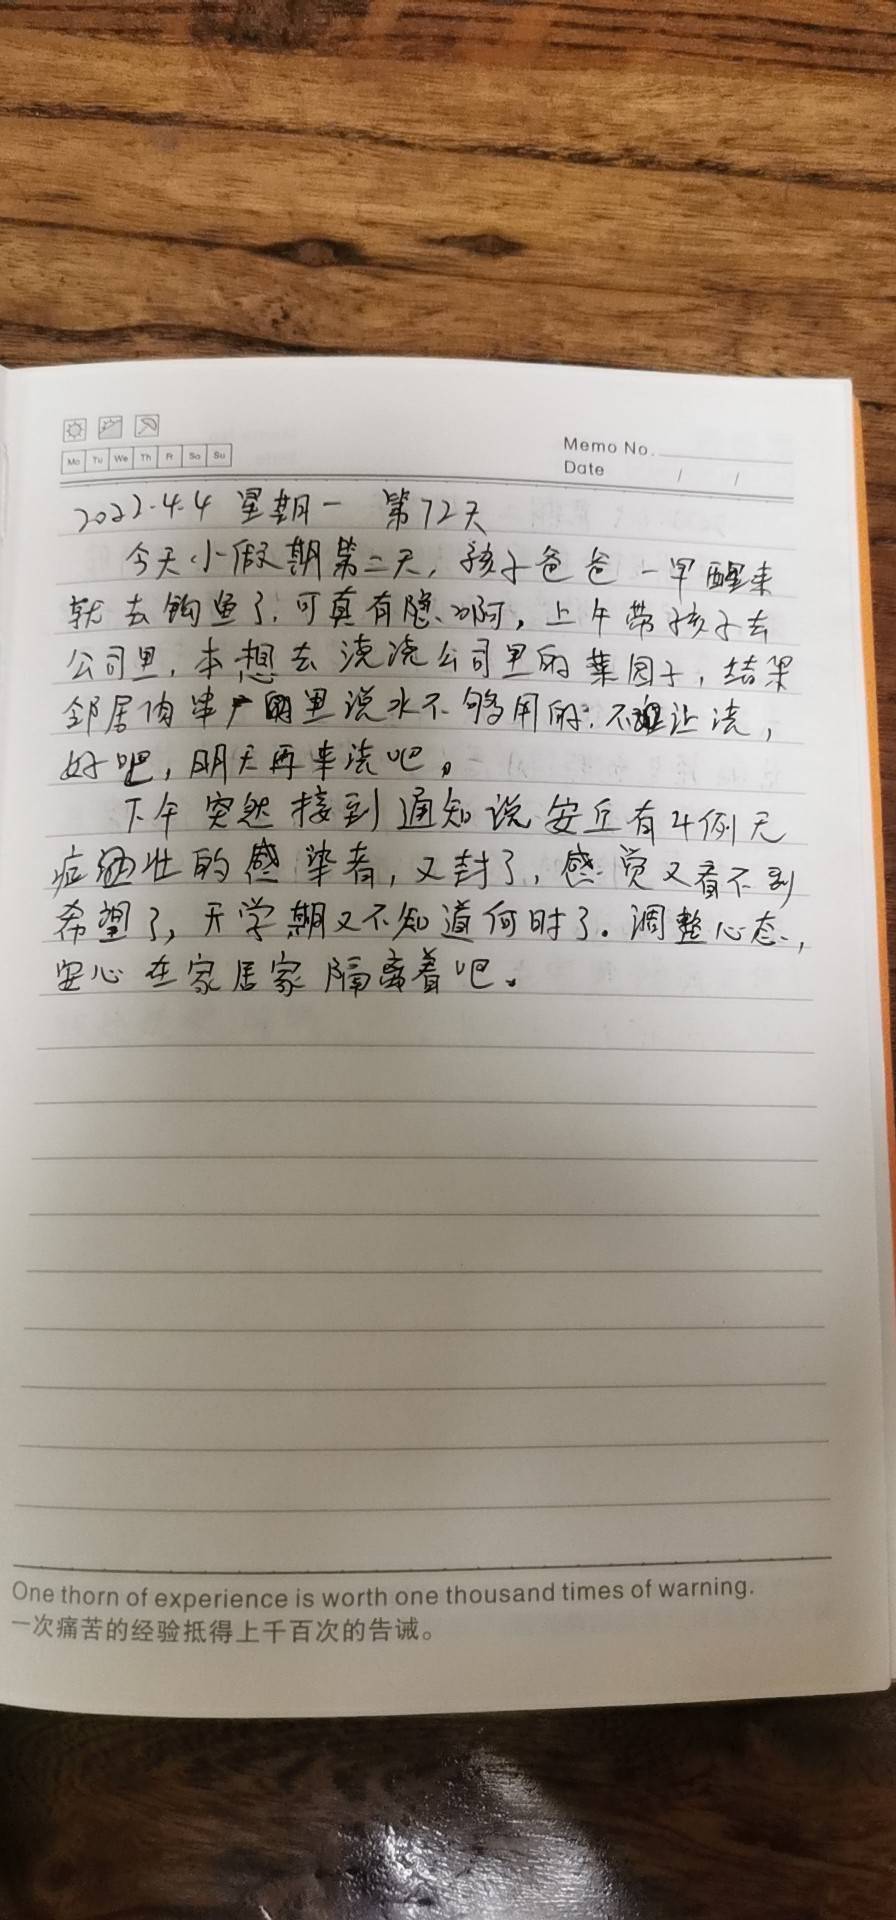 Mo Tu We Th Fr Sa Su
Memo No.
Date / /
2022.4.4 星期一 第72天
今天小假期第二天，孩子爸爸一早醒来
就去钓鱼了，可真有隐心啊，上午带孩子去
公司里，本想去浇浇公司里的菜园子，结果
邻居肉串厂里说水不够用的，不让浇，
好吧，明天再来浇吧。
下午突然接到通知说安丘有4例无
症状的感染者，又封了，感觉又看不到
希望了，开学期又不知道何时了。调整心态，
安心在家居家隔离着吧。
One thorn of experience is worth one thousand times of warning.
一次痛苦的经验抵得上千百次的告诫。